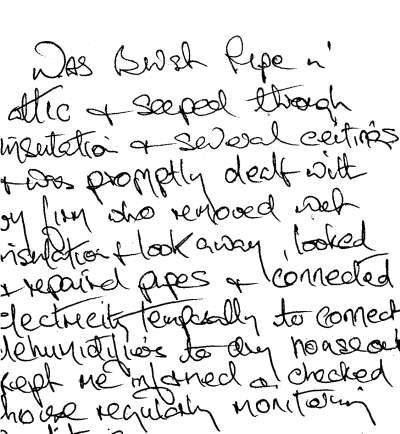 Was Burst Pipe in
attic & seeped through
insulation & several ceilings
& was promptly dealt with
by firm who removed wet
insulation & took away, looked
& repaired pipes & connected
electricity temporally to connect
dehumidifiers to dry house out
kept me informed & checked
house regularly monitoring